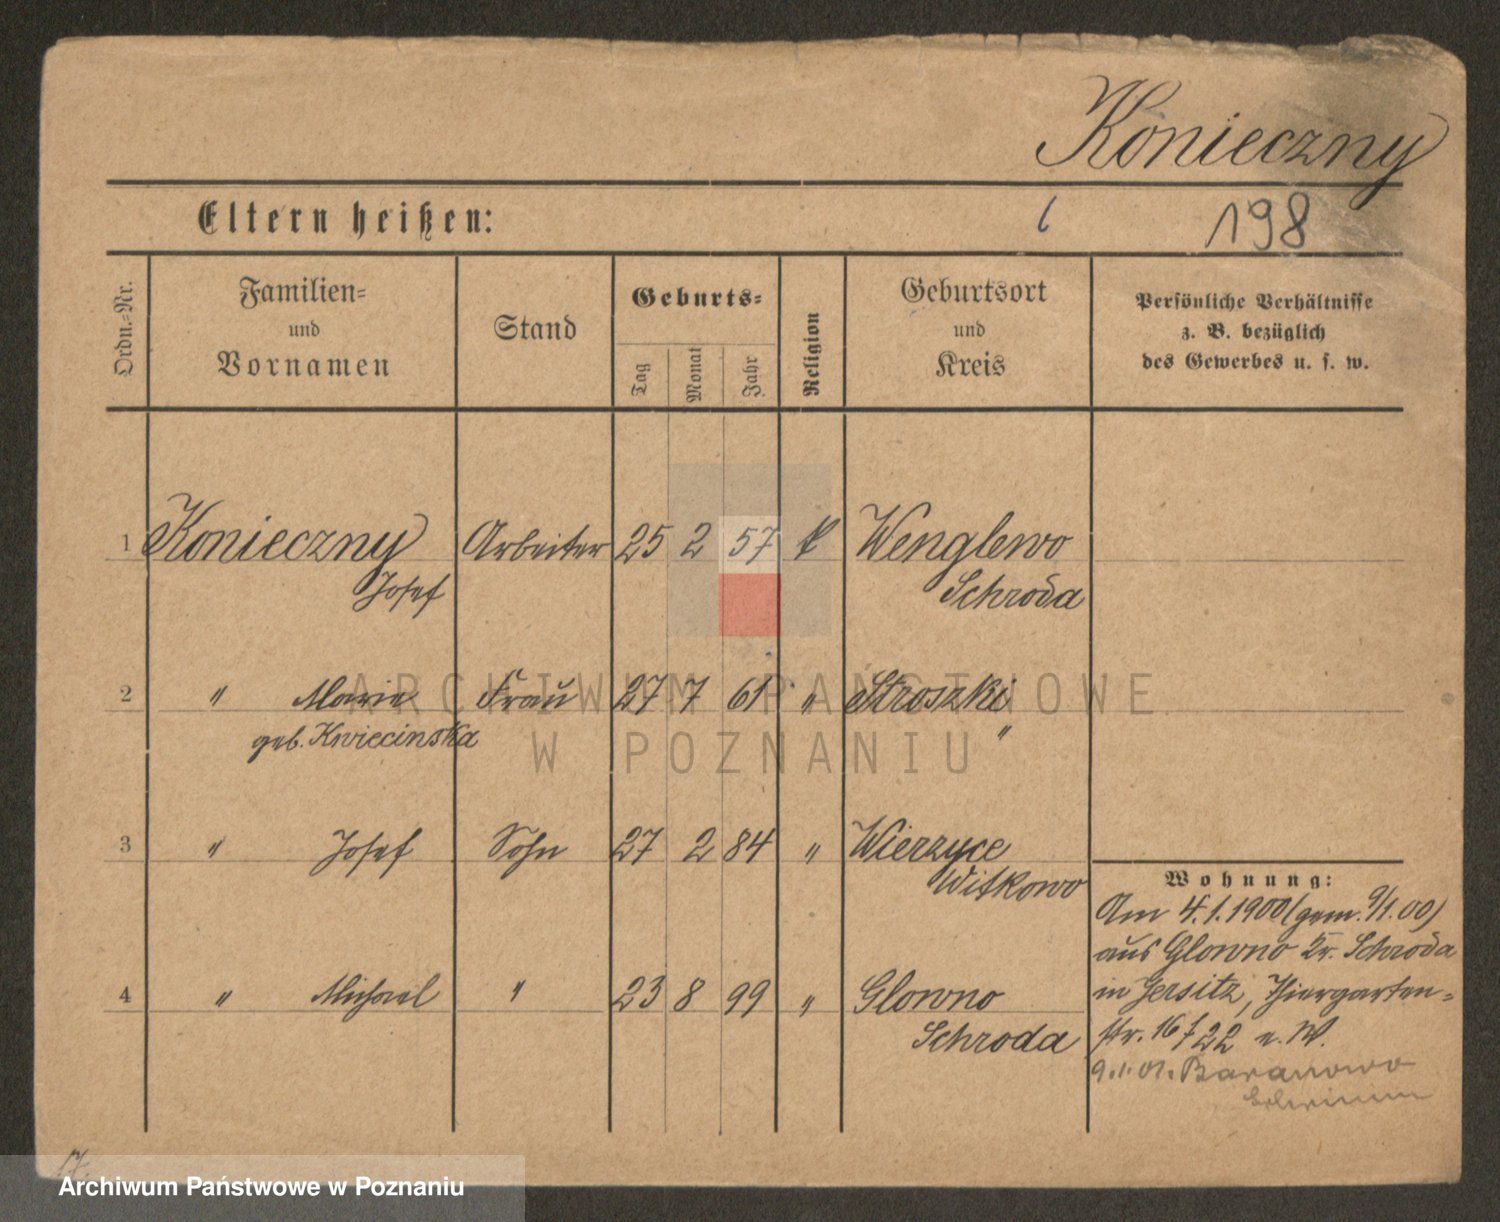 Konieczny
198
Eltern heißen:
Ordn.-Nr.
Familien-
und
Vornamen
Stand
Geburts-
Tag
Monat
Jahr
Religion
Geburtsort
und
Kreis
Persönliche Verhältnisse
z. B. bezüglich
des Gewerbes u. s. w.
1 Konieczny Arbeiter 25 2 57 k Wenglewo
Josef Schroda
2 " Marie Frau 27 7 61 " Stroszki
geb. Kwiecinska "
ARCHIWUM PAŃSTWOWE
W POZNANIU
3 " Josef Sohn 27 2 84 " Wierzyce
Witkowo
Wohnung:
Am 4.1.1900 (gem. 9/1.00)
aus Glowno Kr. Schroda
4 " Michael " 23 8 99 " Glowno
in Jersitz, Thiergarten-
Schroda
str. 16 / 22 e. W.
9.1.01. Baranowo
17.
Archiwum Państwowe w Poznaniu